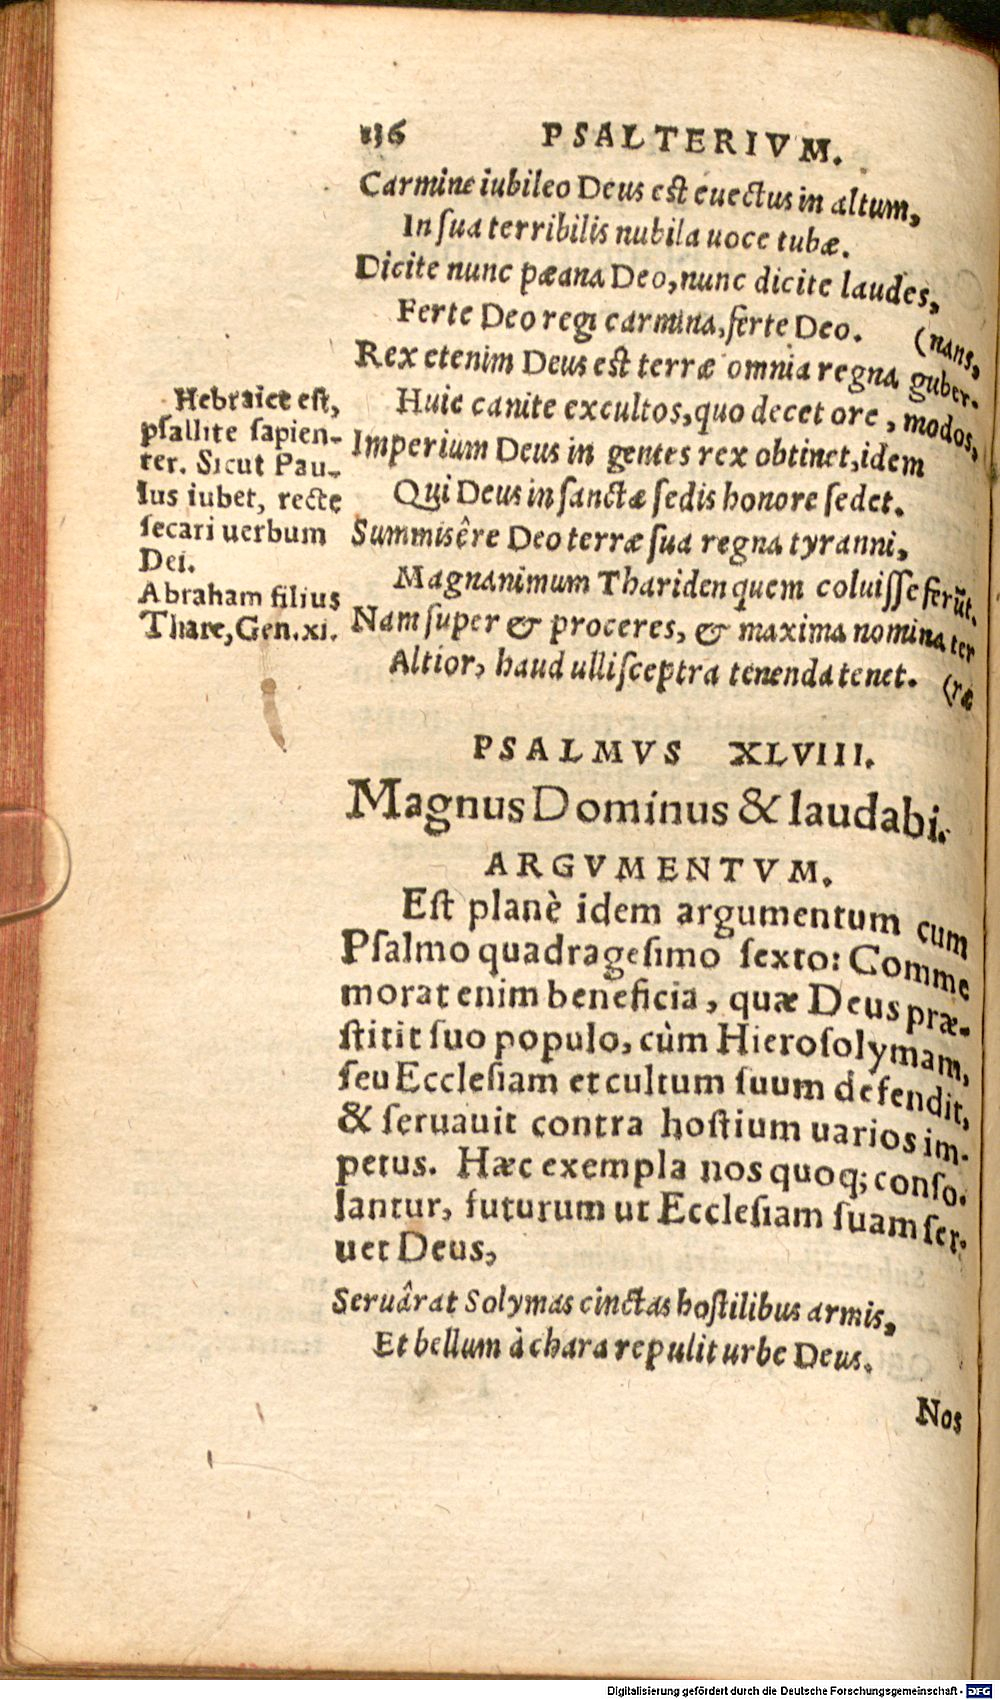 136 PSALTERIVM.
Carmine iubileo Deus est euectus in altum,
In sua terribilis nubila uoce tubæ.
Dicite nunc pæana Deo, nunc dicite laudes,
Ferte Deo regi carmina, ferte Deo. (nans,
Rex etenim Deus est terræ omnia regna guber-
Huic canite excultos, quo decet ore, modos,
Imperium Deus in gentes rex obtinet, idem
Qui Deus in sanctæ sedis honore sedet.
Summisêre Deo terræ sua regna tyranni,
Magnanimum Thariden quem coluisse ferũt.
Nam super & proceres, & maxima nomina ter
Altior, haud ulli sceptra tenenda tenet. (ræ
Hebraice est,
psallite sapien-
ter. Sicut Pau-
lus iubet, recte
secari uerbum
Dei.
Abraham filius
Thare, Gen. xi.
PSALMVS XLVIII.
Magnus Dominus & laudabi.
ARGVMENTVM.
Est planè idem argumentum cum
Psalmo quadragesimo sexto: Comme
morat enim beneficia, quæ Deus præ-
stitit suo populo, cùm Hierosolymam,
seu Ecclesiam et cultum suum defendit,
& seruauit contra hostium uarios im-
petus. Hæc exempla nos quoq; conso-
lantur, futurum ut Ecclesiam suam ser-
uet Deus,
Seruârat Solymas cinctas hostilibus armis,
Et bellum à chara repulit urbe Deus.
Nos
Digitalisierung gefördert durch die Deutsche Forschungsgemeinschaft - DFG